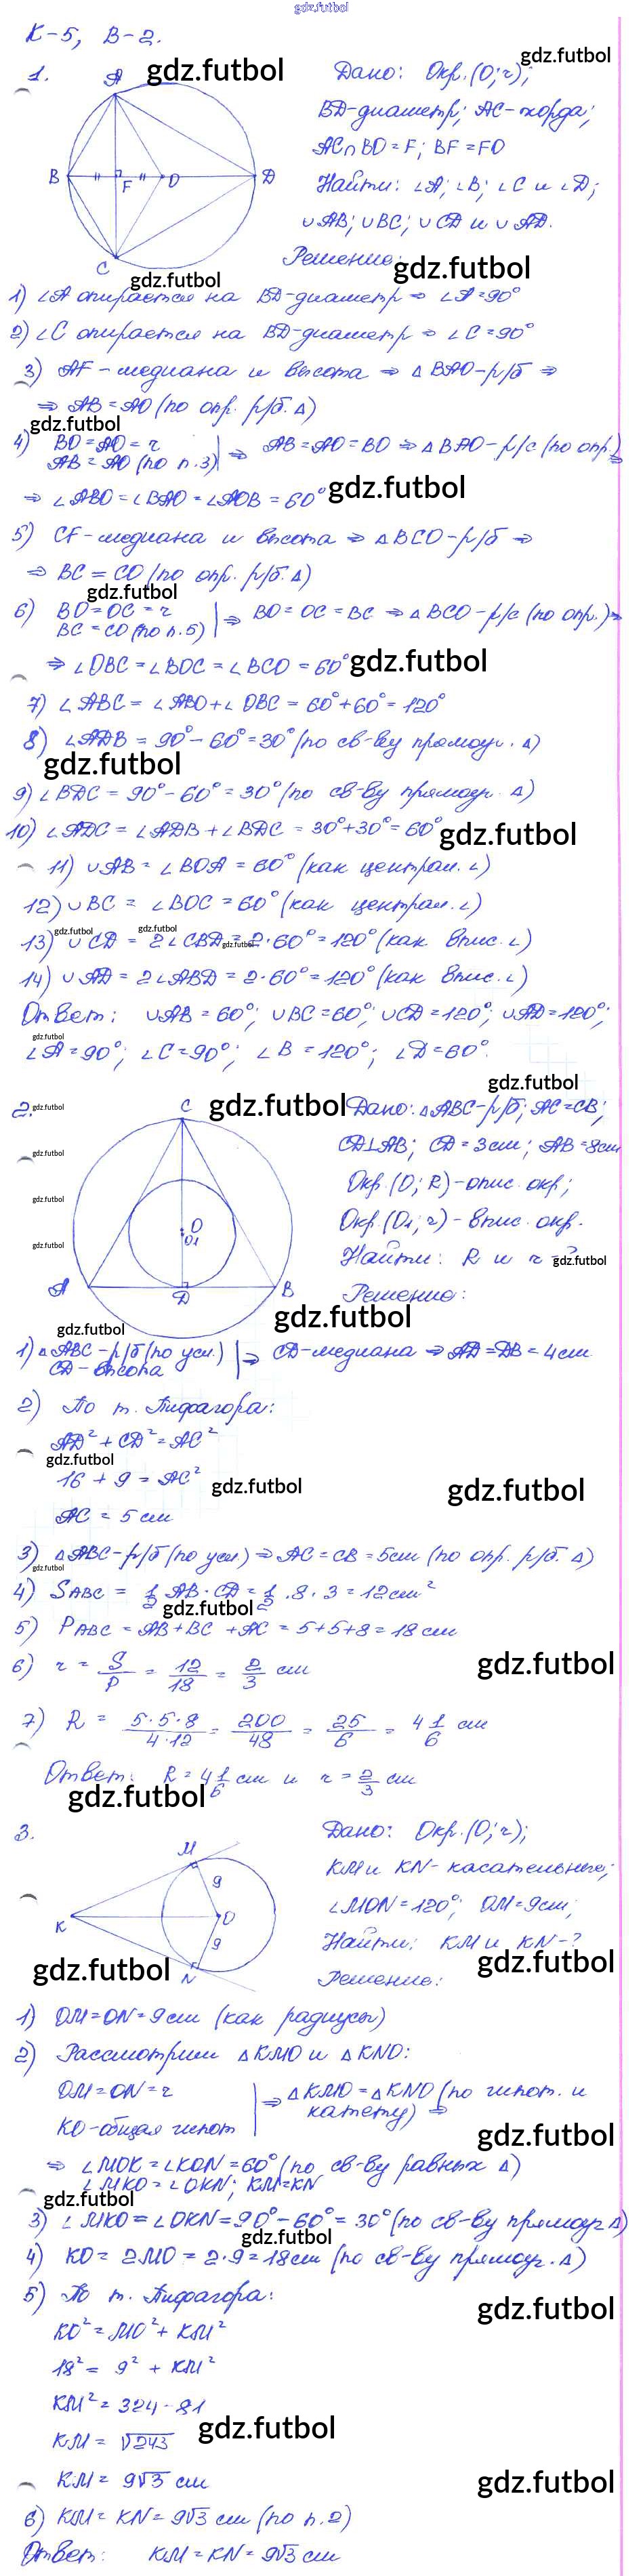 gdz.futbol
К-5, В-2.
gdz.futbol
gdz.futbol
1.
Дано: Окр.(O;r);
BD-диаметр; AC-хорда;
AC∩BO=F; BF=FO
Найти: ∠A; ∠B; ∠C и ∠D;
∪AB; ∪BC; ∪CD и ∪AD.
Решение:
gdz.futbol
A
B
F
O
D
C
gdz.futbol
1) ∠A опирается на BD-диаметр ⇒ ∠A=90°
2) ∠C опирается на BD-диаметр ⇒ ∠C=90°
3) AF-медиана и высота ⇒ △BAO-р/б ⇒
⇒ AB=AO (по опр. р/б. △)
gdz.futbol
4) BO=AO=r
AB=AO (по п.3) | ⇒ AB=AO=BO ⇒ △BAO-р/с (по опр.) ⇒
⇒ ∠ABO=∠BAO=∠AOB=60°
gdz.futbol
5) CF-медиана и высота ⇒ △BCO-р/б ⇒
⇒ BC=CO (по опр. р/б. △)
gdz.futbol
6) BO=OC=r
BC=CO (по п.5) | ⇒ BO=OC=BC ⇒ △BCO-р/с (по опр.) ⇒
⇒ ∠OBC=∠BOC=∠BCO=60°
gdz.futbol
7) ∠ABC=∠ABO+∠OBC=60°+60°=120°
8) ∠ADB=90°-60°=30° (по св-ву прямоуг. △)
gdz.futbol
9) ∠BDC=90°-60°=30° (по св-ву прямоуг. △)
10) ∠ADC=∠ADB+∠BDC=30°+30°=60°
gdz.futbol
11) ∪AB=∠BOA=60° (как централ. ∠)
12) ∪BC=∠BOC=60° (как централ. ∠)
gdz.futbol
gdz.futbol
gdz.futbol
13) ∪CD=2∠CBD=2·60°=120° (как впис. ∠)
14) ∪AD=2∠ABD=2·60°=120° (как впис. ∠)
Ответ: ∪AB=60°; ∪BC=60°; ∪CD=120°; ∪AD=120°;
gdz.futbol
∠A=90°; ∠C=90°; ∠B=120°; ∠D=60°.
gdz.futbol
2.
gdz.futbol
gdz.futbol
Дано: △ABC-р/б; AC=CB;
CD⊥AB; CD=3см; AB=8см
Окр.(O;R)-опис. окр;
Окр.(O1;r)-впис. окр.
Найти: R и r-?
gdz.futbol
Решение:
gdz.futbol
gdz.futbol
gdz.futbol
C
O
O1
A
D
B
gdz.futbol
gdz.futbol
1) △ABC-р/б (по усл.)
CD-высота | ⇒ CD-медиана ⇒ AD=DB=4см
2) По т. Пифагора:
AD²+CD²=AC²
gdz.futbol
16+9=AC²
gdz.futbol
gdz.futbol
AC=5 см
3) △ABC-р/б (по усл.) ⇒ AC=CB=5см (по опр. р/б. △)
gdz.futbol
4) SABC=1/2 AB·CD=1/2·8·3=12см²
gdz.futbol
5) PABC=AB+BC+AC=5+5+8=18 см
6) r=S/P=12/18=2/3 см
gdz.futbol
7) R=5·5·8/4·12=200/48=25/6=4 1/6 см
Ответ: R=4 1/6 см и r=2/3 см
gdz.futbol
3.
Дано: Окр.(O;r);
KM и KN-касательные;
∠MON=120°; OM=9см;
Найти: KM и KN-?
gdz.futbol
Решение:
M
9
K
O
9
N
gdz.futbol
1) OM=ON=9см (как радиусы)
2) Рассмотрим △KMO и △KNO:
OM=ON=r
KO-общая гипот | ⇒ △KMO=△KNO (по гипот. и катету) ⇒
gdz.futbol
⇒ ∠MOK=∠KON=60° (по св-ву равных △)
∠MKO=∠OKN; KM=KN
gdz.futbol
3) ∠MKO=∠OKN=90°-60°=30° (по св-ву прямоуг △)
gdz.futbol
4) KO=2MO=2·9=18см (по св-ву прямоуг. △)
5) По т. Пифагора:
gdz.futbol
KO²=MO²+KM²
18²=9²+KM²
KM²=324-81
gdz.futbol
KM=√243
KM=9√3 см
gdz.futbol
6) KM=KN=9√3 см (по п.2)
Ответ: KM=KN=9√3 см